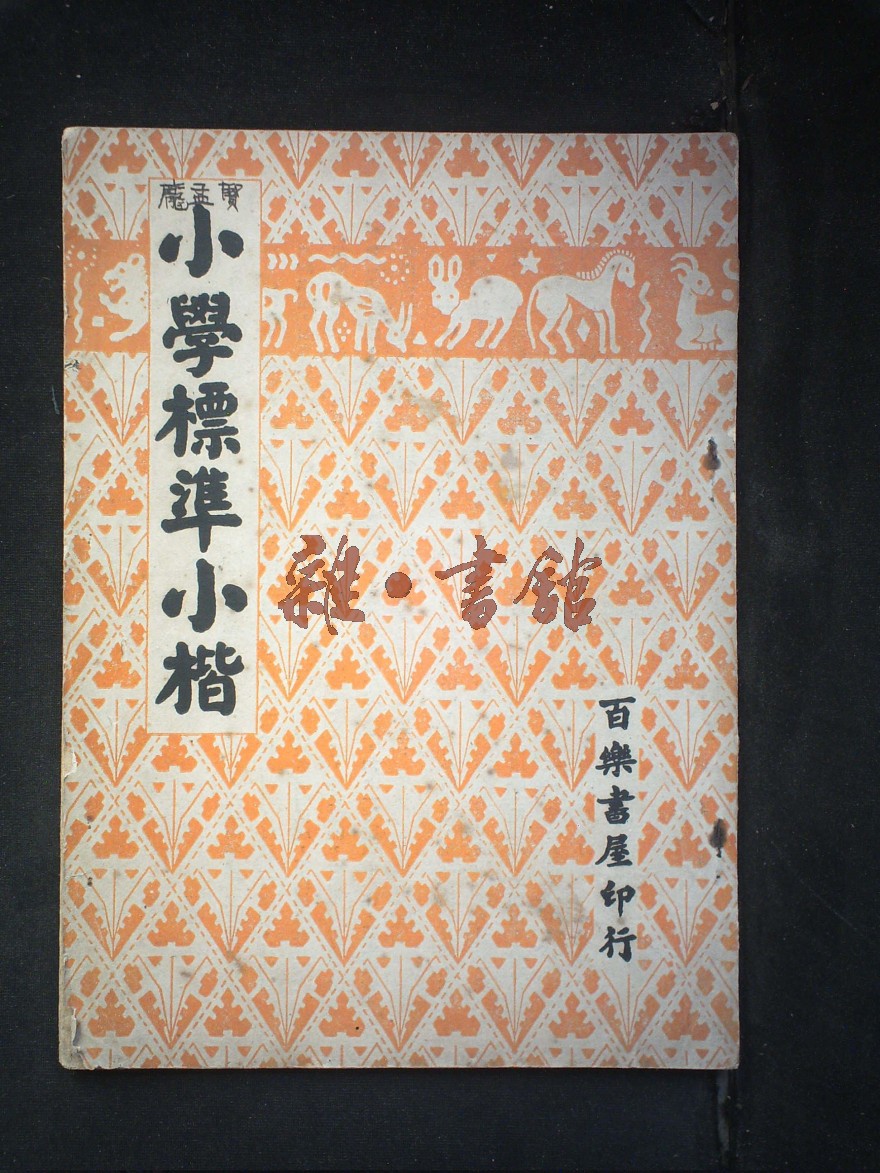 小學標準小楷
百樂書屋印行
雜·書館